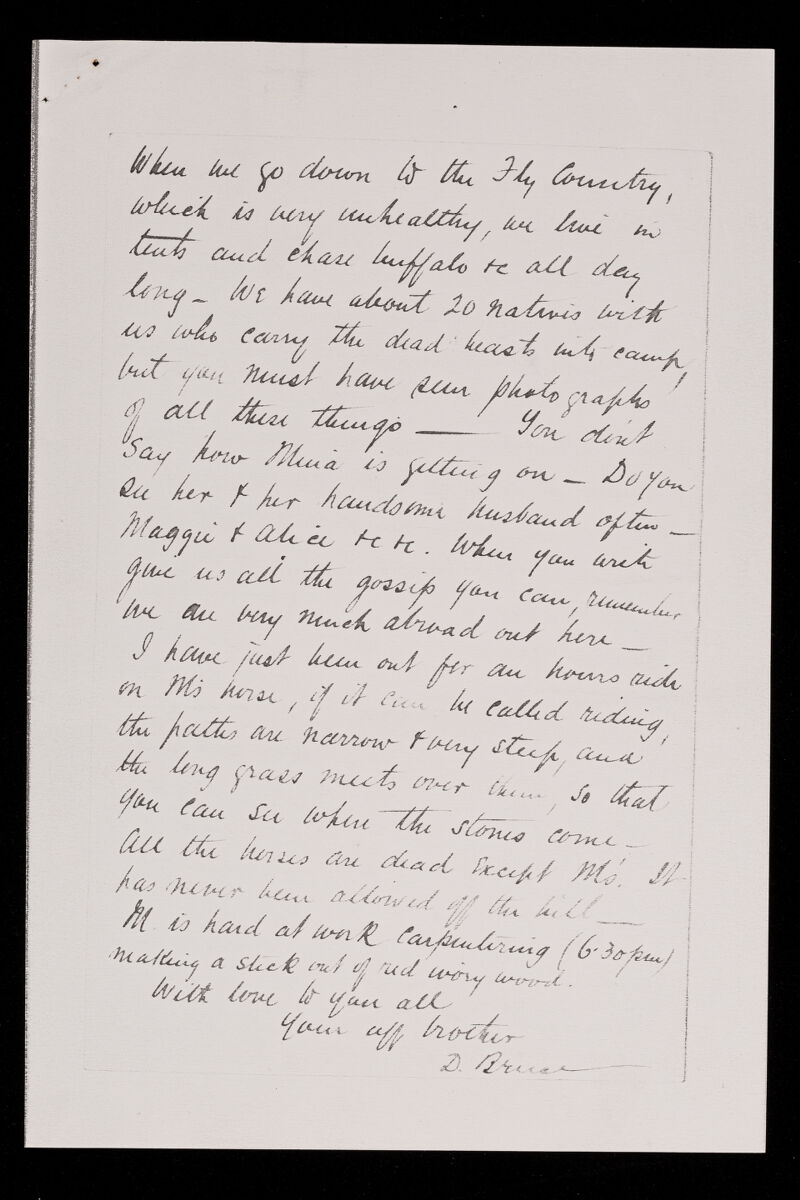 When we go down to the Fly Country,
which is very unhealthy, we live in
tents and chase buffalo &c all day
long - We have about 20 natives with
us who carry the dead beasts into camp,
but you must have seen photographs
of all these things — You don't
say how Mina is getting on - Do you
see her & her handsome husband often -
Maggie & Alice &c &c. When you write
give us all the gossip you can, remember
we are very much abroad out here -
I have just been out for an hours ride
on M's horse, if it can be called riding,
the paths are narrow & very steep, and
the long grass meets over them, so that
you can see where the stones come -
All the horses are dead except M's. It
has never been allowed off the hill -
M. is hard at work carpentering (6.30pm)
making a stick out of red ivory wood.
With love to you all
Your aff brother
D. Bruce